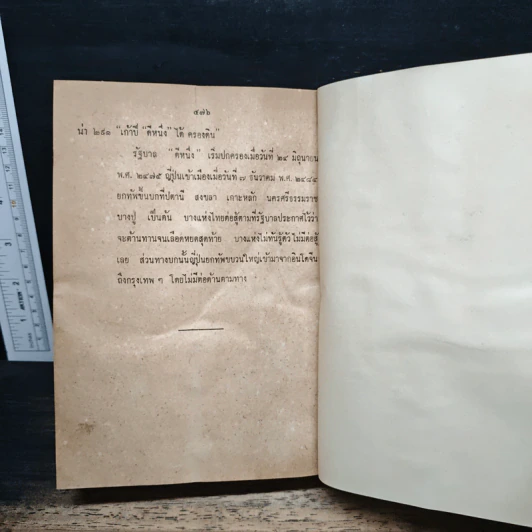 ๔๗๖
น่า ๒๙๑ "เก้าปี "ดีหนึ่ง" ได้ ครองดิน"
รัฐบาล "ดีหนึ่ง" เริ่มปกครองเมื่อวันที่ ๒๔ มิถุนายน
พ.ศ. ๒๔๗๕ ญี่ปุ่นเข้าเมืองเมื่อวันที่ ๗ ธันวาคม พ.ศ. ๒๔๘๔
ยกทัพขึ้นบกที่ปตานี สงขลา เกาะหลัก นครศรีธรรมราช
บางปู เป็นต้น บางแห่งไทยต่อสู้ตามที่รัฐบาลประกาศไว้ว่า
จะต้านทานจนเลือดหยดสุดท้าย บางแห่งไม่ทันรู้ตัว ไม่มีต่อสู้
เลย ส่วนทางบกนั้นญี่ปุ่นยกทัพขบวนใหญ่เข้ามาจากอินโดจีน
ถึงกรุงเทพ ๆ โดยไม่มีต่อต้านตามทาง